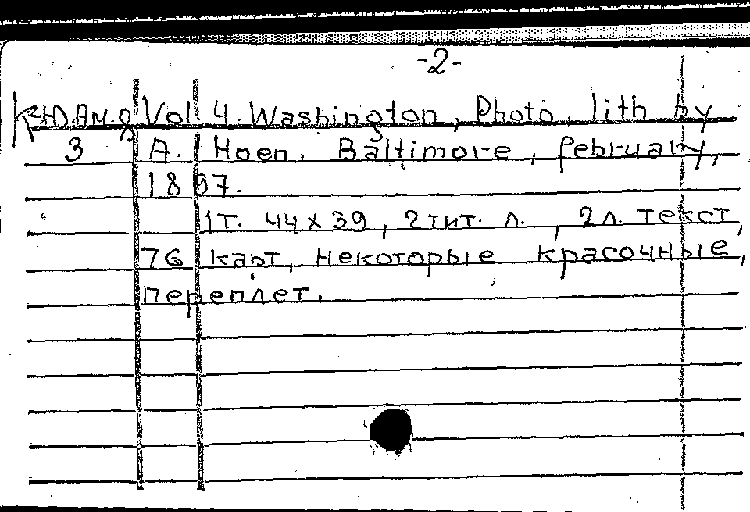 -2-
К Ю.Ам.д Vol 4. Washington, Photo. lith by
3 A. Hoen. Baltimore, february,
1897.
1т. 44 x 39, 2 тит. л., 2л. текст,
76 карт, некоторые красочные,
переплет.